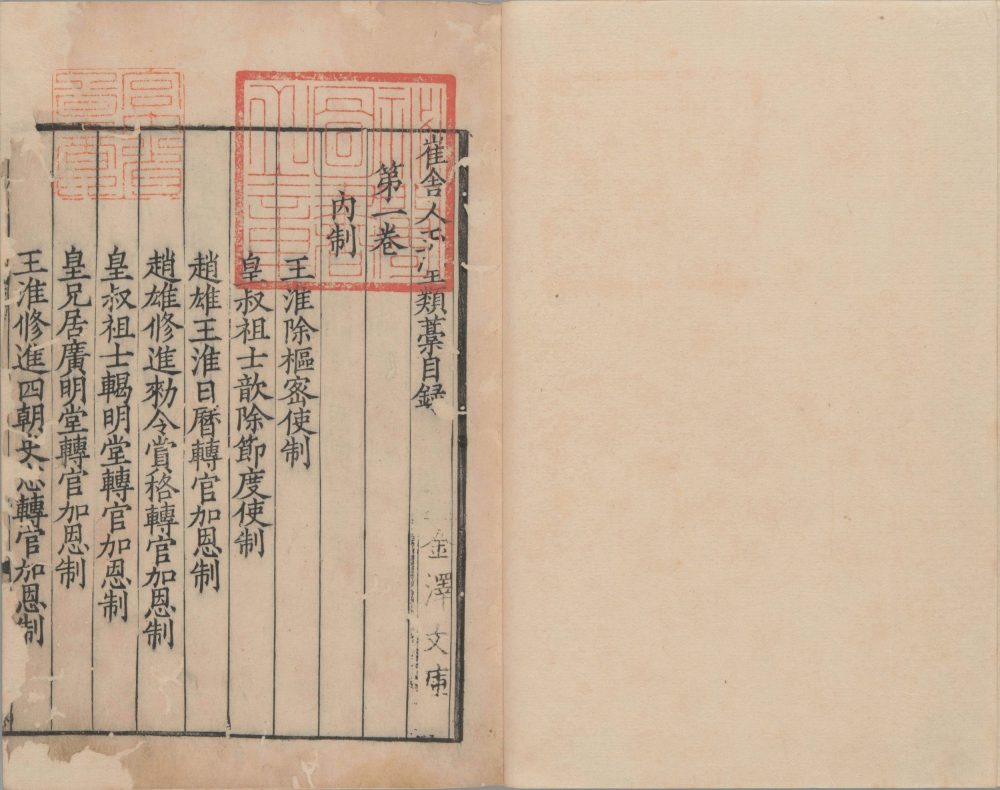 崔舍人玉堂類藁目録
金澤文庫
第一卷
內制
王淮除樞宻使制
皇叔祖士歆除節度使制
趙雄王淮日曆轉官加恩制
趙雄修進勑令賞格轉官加恩制
皇叔祖士輵明堂轉官加恩制
皇兄居廣明堂轉官加恩制
王淮修進四朝史志轉官加恩制
秘閣圖書之章